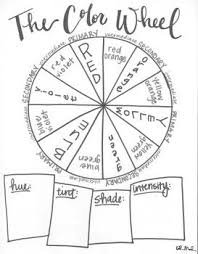 The Color Wheel
PRIMARY
intermediate
SECONDARY
intermediate
PRIMARY
intermediate
SECONDARY
intermediate
PRIMARY
SECONDARY
RED
red orange
orange
yellow orange
YELLOW
yellow green
green
blue green
BLUE
blue violet
violet
red violet
hue:
tint:
shade:
intensity: